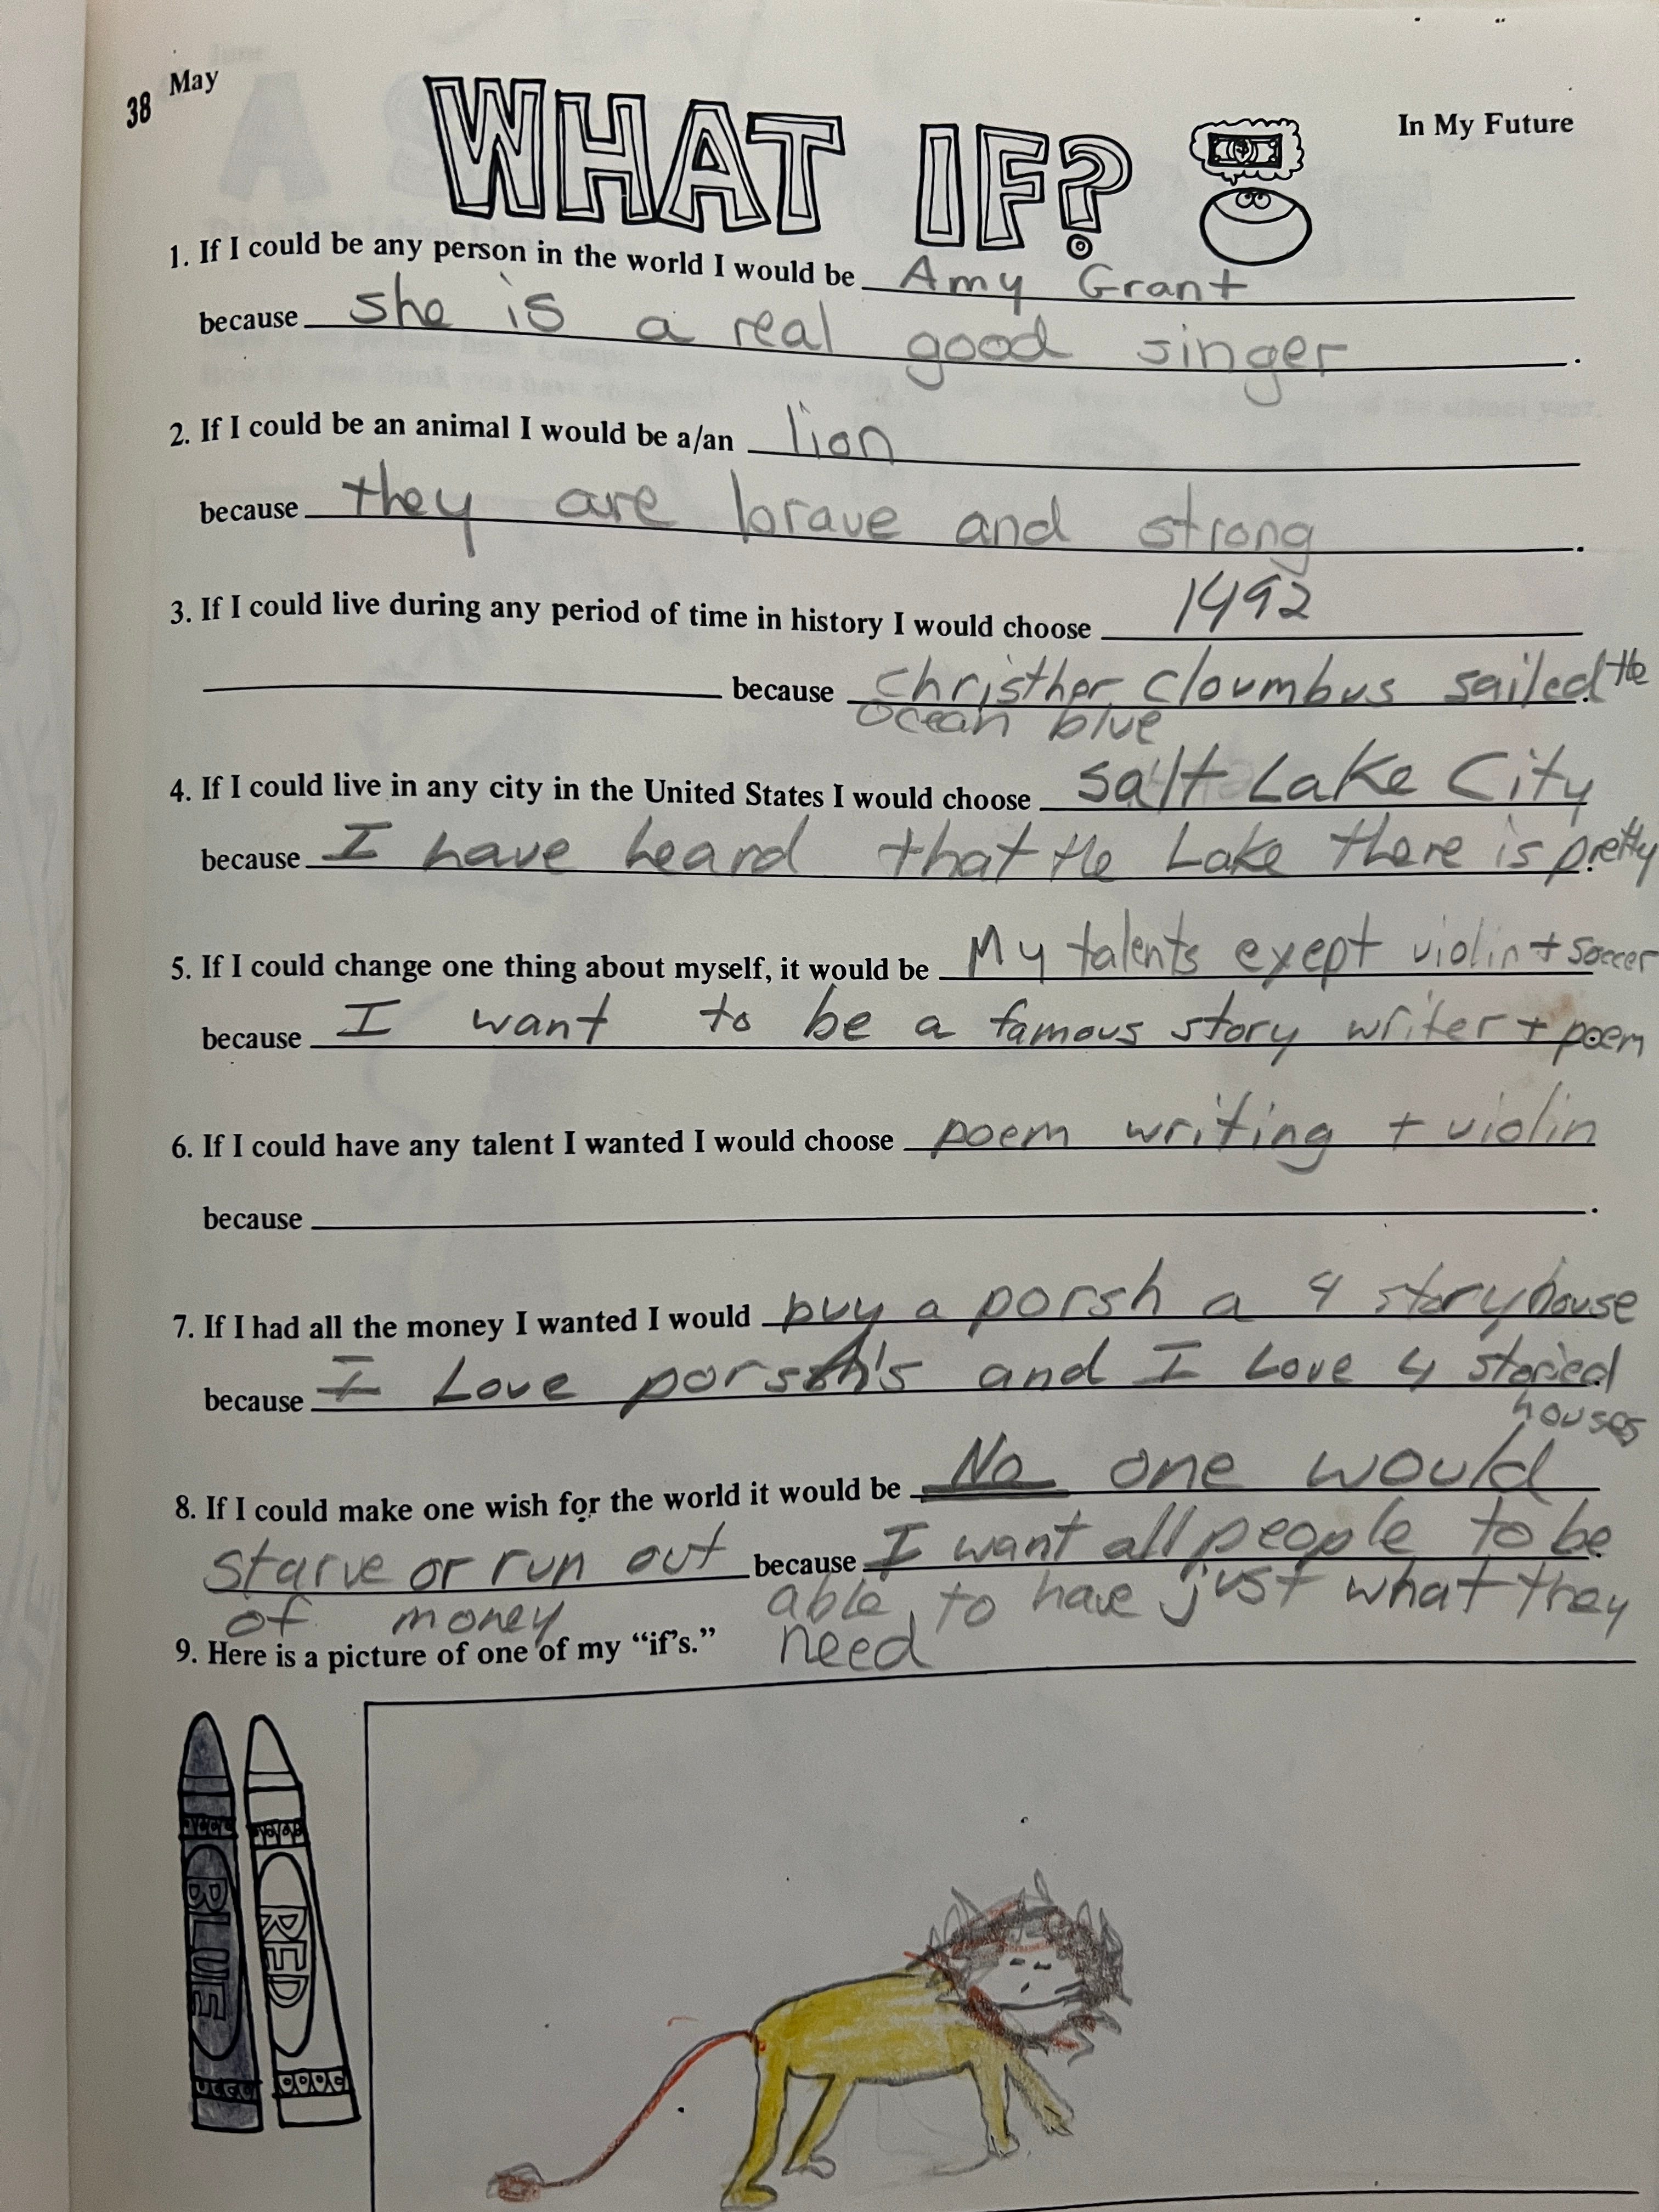 38 May
WHAT IF?
In My Future
1. If I could be any person in the world I would be Amy Grant
because she is a real good singer.
2. If I could be an animal I would be a/an lion
because they are brave and strong.
3. If I could live during any period of time in history I would choose 1492
because christher cloumbus sailed the
ocean blue
4. If I could live in any city in the United States I would choose salt Lake City
because I have heard that the Lake there is pretty.
5. If I could change one thing about myself, it would be My talents exept violin + soccer
because I want to be a famous story writer + poem.
6. If I could have any talent I wanted I would choose poem writing + violin
because .
7. If I had all the money I wanted I would buy a porsh a 4 story house
because I Love porsh's and I Love 4 storied
houses
8. If I could make one wish for the world it would be No one would
starve or run out because I want all people to be.
of money able to have just what they
9. Here is a picture of one of my “if’s.” need
BLUE
RED